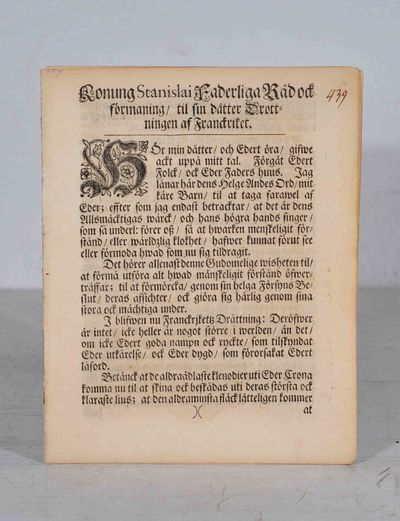 Konung Stanislai Faderliga Råd ock
förmaning/ til sin dätter Drott-
ningen af Franckriket.
439
Hör min dätter/ och Edert öra/ gifwe
ackt uppå mitt tal. Förgät Edert
Folck/ och Eder Faders huus. Jag
länar här dens Helge Andes Ord/ mit
käre Barn/ til at taga farawel af
Eder; effter som jag endast betracktar/ at det är dens
Allsmäcktigas wärck/ och hans högra hands finger/
som så underl: förer oß/ så at hwarken menskeligit för-
ständ/ eller wärldzlig klokhet/ hafwer kunnat förut see
eller förmoda hwad som nu sig tildragit.
Det hörer allenast denne Gudomelige wisheten til/
at förmå utföra alt hwad mänskeligit förständ öfwer-
träffar; til at förmörcka/ genom sin helga Försyns Be-
slut/ deras affichter/ och giöra sig härlig genom sina
stora och mächtiga under.
I blifwen nu Franckrjketz Drättning: Deröfwer
är intet/ icke heller är nogot större i werlden/ än det/
om icke Edert goda nampn och ryckte/ som tilskyndat
Eder utkårelse/ och Eder dygd/ som förorsakat Edert
läford.
Betänck at de aldraädlaste klenodier uti Eder Crona
komma nu til at skina och beskådas uti deras största och
klaraste lius; at den aldraminsta fläck lätteligen kommer
)( at